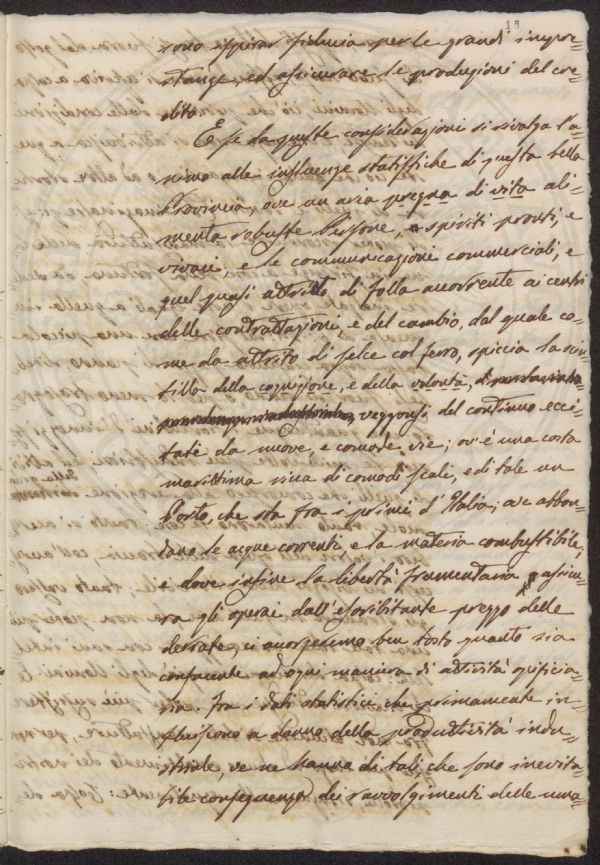 15
rono ispirar fiducia per le grandi impre=
stanze, ed assicurare le produzioni del cre=
dito.
E se da queste considerazioni si rivolga l'a=
nimo alle influenze statistiche di questa bella
Provincia, ove un aria pregna di vita ali=
menta robuste Persone, spiriti pronti, e
vivaci, e le communicazioni commerciali, e
quel quasi attrito di folla accorrente ai centri
delle contrattazioni, e del cambio, dal quale co=
me da attrito di selce col ferro, spiccia la scin=
tilla della cognizione, e della volontà,
veggonsi del continuo ecci=
tate da nuove, e comode vie; ov'è una costa
marittima ricca di comodi scali, e di tale un
Porto, che sta fra i primi d'Italia; ove abbon=
dano le acque correnti, e la materia combustibile,
e dove infine la libertà frumentaria assicu=
ra gli operai dall'esorbitante prezzo delle
derrate, ci accorgeremo ben tosto quanto sia
confacente ad ogni maniera di attività opificia=
ria. Fra i dati statistici che primamente in=
fluiscono a danno della produttività indu=
striale, ve ne hanno di tali che sono inevita=
bile conseguenza dei ravvolgimenti delle uma=